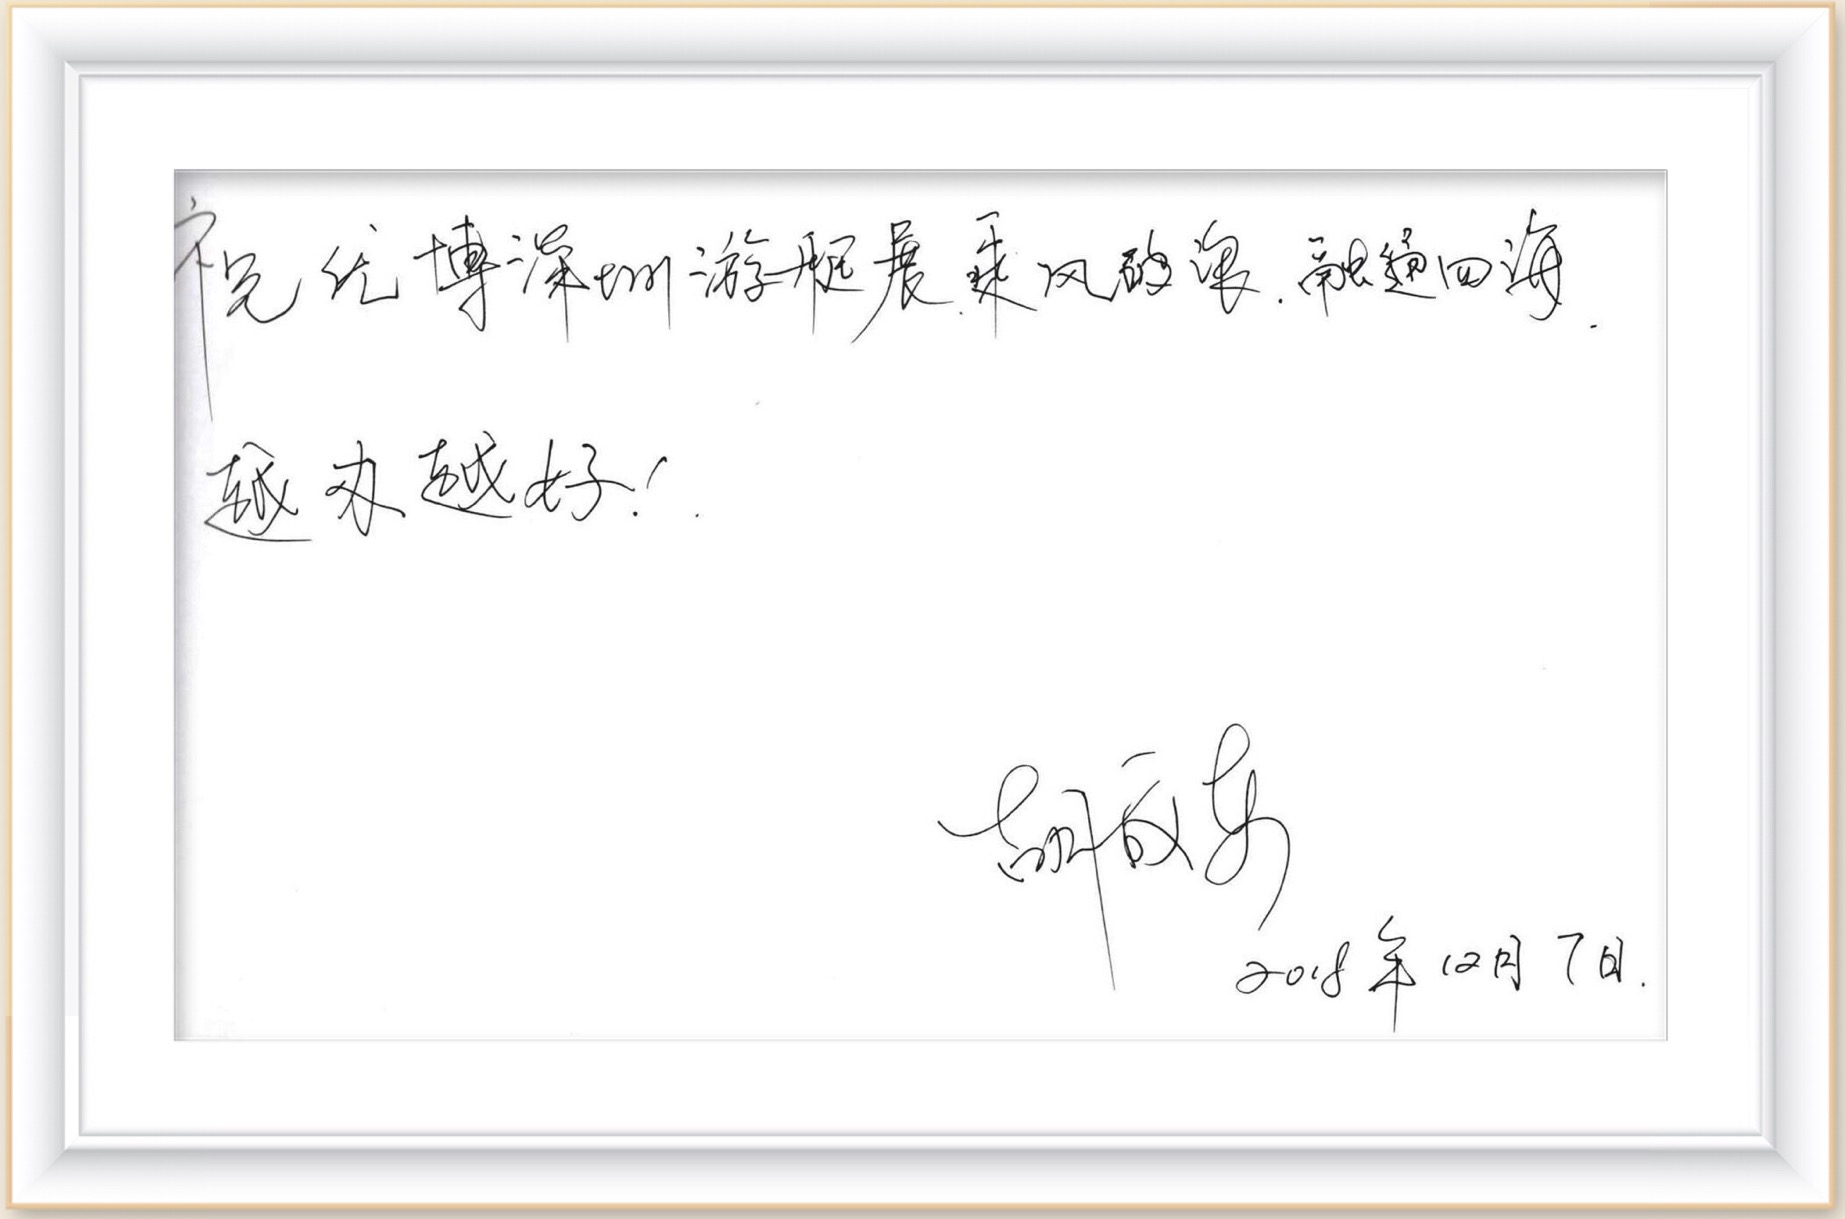 祝优博深圳游艇展.乘风破浪.融通四海.
越办越好!.
胡
2018年12月7日.